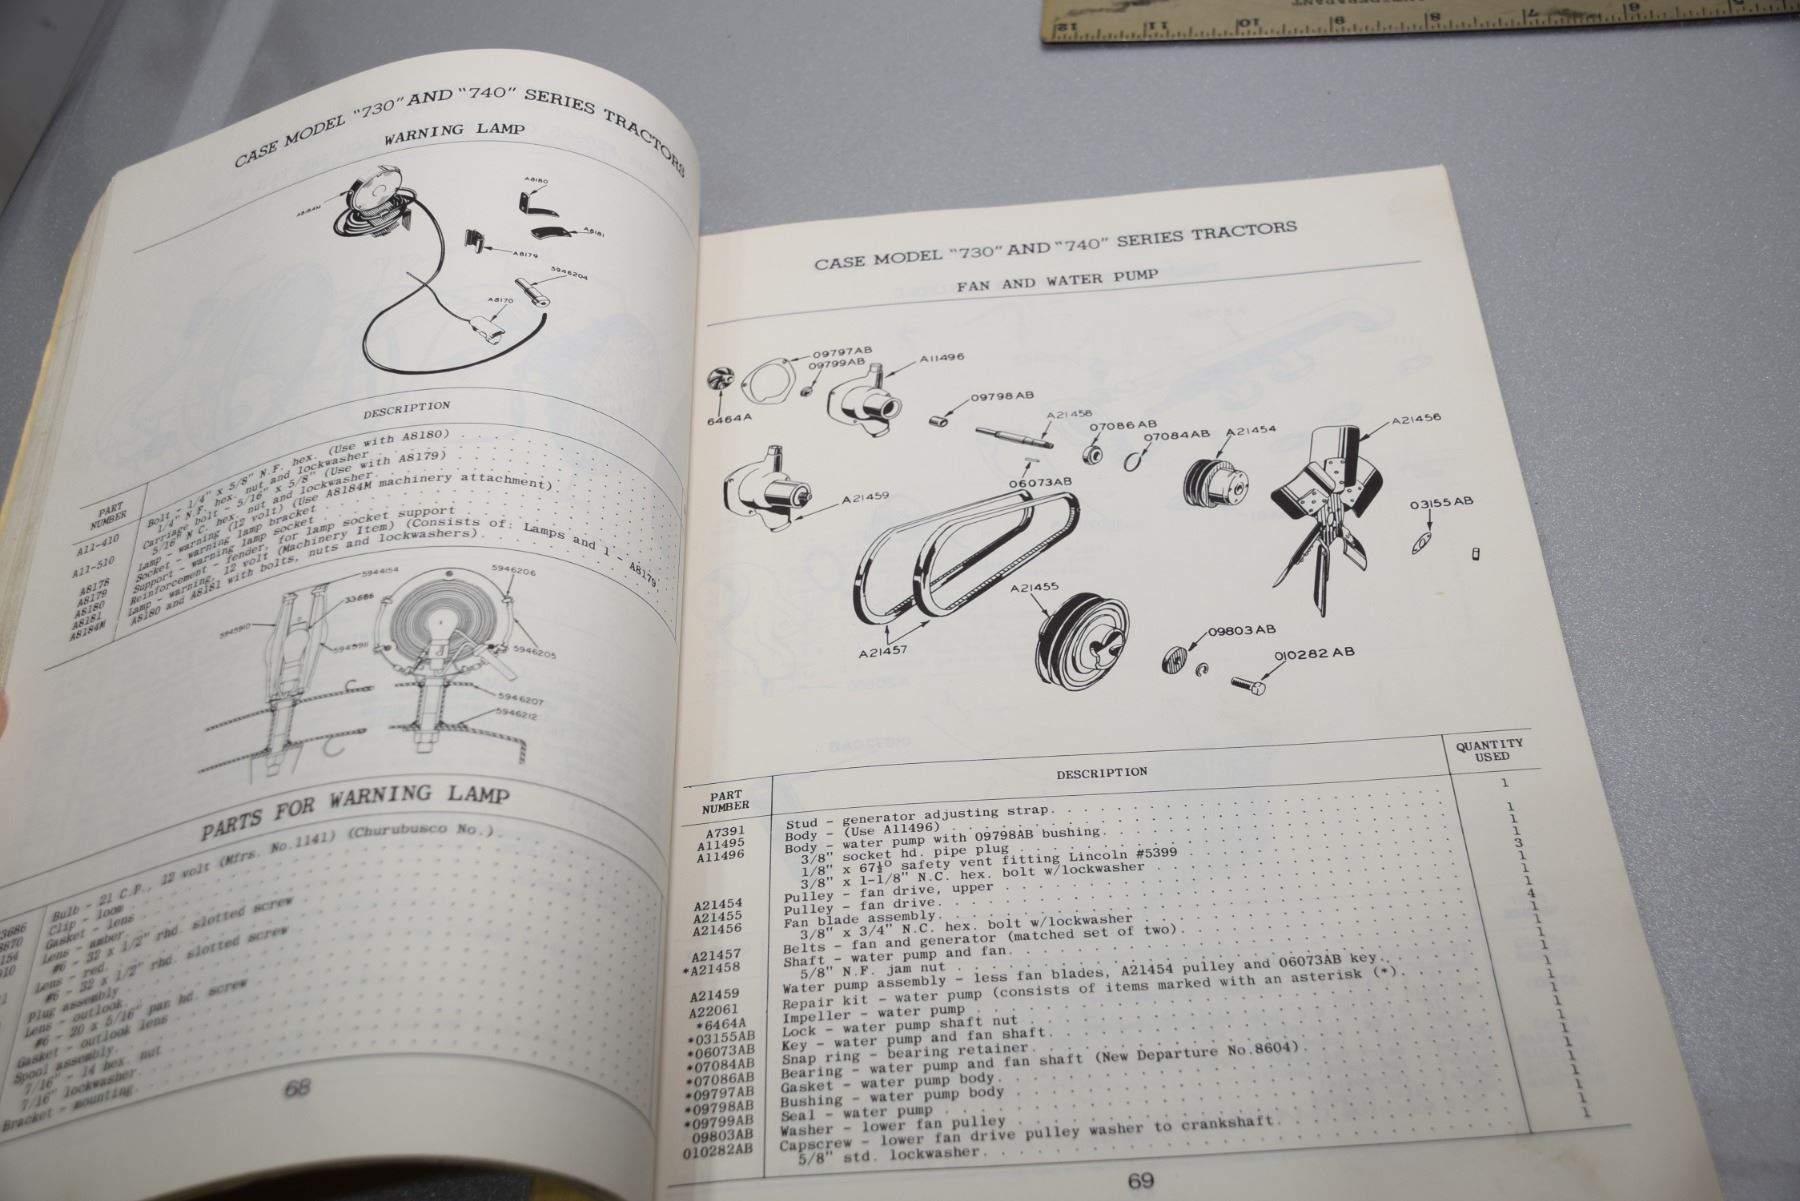 CASE MODEL "730" AND "740" SERIES TRACTORS
WARNING LAMP
A8184M
A8180
A8181
A8179
5946204
A8170
DESCRIPTION
PART
NUMBER
A11-410
Bolt - 1/4" x 5/8" N.F. hex. (Use with A8180)
1/4" N.F. hex. nut and lockwasher
A11-510
Carriage bolt - 5/16" x 5/8" (Use with A8179)
5/16" N.C. hex. nut and lockwasher
A8178
Lamp - warning (12 volt) (Use A8184M machinery attachment)
A8179
Socket - warning lamp bracket
A8180
Support - warning lamp socket
A8181
Reinforcement - fender, for lamp socket support
A8184M
Lamp - warning, 12 volt (Machinery Item) (Consists of: Lamps and 1 - A8179,
A8180 and A8181 with bolts, nuts and lockwashers)
5944154
33686
5945910
5945911
5946206
5946205
5946207
5946212
PARTS FOR WARNING LAMP
Bulb - 21 C.P., 12 volt (Mfrs. No.1141) (Churubusco No.)
Clip - loom
Gasket - lens
Lens - amber
#6 - 32 x 1/2" rhd. slotted screw
Lens - red
#6 - 32 x 1/2" rhd. slotted screw
Plug assembly
Lens - outlook
#6 - 20 x 5/16" pan hd. screw
Gasket - outlook lens
Spool assembly
7/16" - 14 hex. nut
7/16" lockwasher
Bracket - mounting
68
CASE MODEL "730" AND "740" SERIES TRACTORS
FAN AND WATER PUMP
09797AB
09799AB
A11496
6464A
09798AB
A21458
07086AB
07084AB
A21454
A21456
06073AB
A21459
03155AB
A21455
A21457
09803AB
010282AB
PART
NUMBER
DESCRIPTION
QUANTITY
USED
A7391 Stud - generator adjusting strap 1
A11495 Body - (Use A11496)
A11496 Body - water pump with 09798AB bushing 1
3/8" socket hd. pipe plug 1
1/8" x 67½° safety vent fitting Lincoln #5399 1
3/8" x 1-1/8" N.C. hex. bolt w/lockwasher 3
A21454 Pulley - fan drive, upper 1
A21455 Pulley - fan drive 1
A21456 Fan blade assembly 1
3/8" x 3/4" N.C. hex. bolt w/lockwasher 4
A21457 Belts - fan and generator (matched set of two) 1
*A21458 Shaft - water pump and fan 1
5/8" N.F. jam nut 1
A21459 Water pump assembly - less fan blades, A21454 pulley and 06073AB key 1
A22061 Repair kit - water pump (consists of items marked with an asterisk (*) 1
*6464A Impeller - water pump 1
*03155AB Lock - water pump shaft nut 1
*06073AB Key - water pump and fan shaft 1
*07084AB Snap ring - bearing retainer 1
*07086AB Bearing - water pump and fan shaft (New Departure No.8604) 1
*09797AB Gasket - water pump body 1
*09798AB Bushing - water pump body 1
*09799AB Seal - water pump 1
09803AB Washer - lower fan pulley 1
010282AB Capscrew - lower fan drive pulley washer to crankshaft 1
5/8" std. lockwasher 1
69
12 11 10 9 8 7 6 5